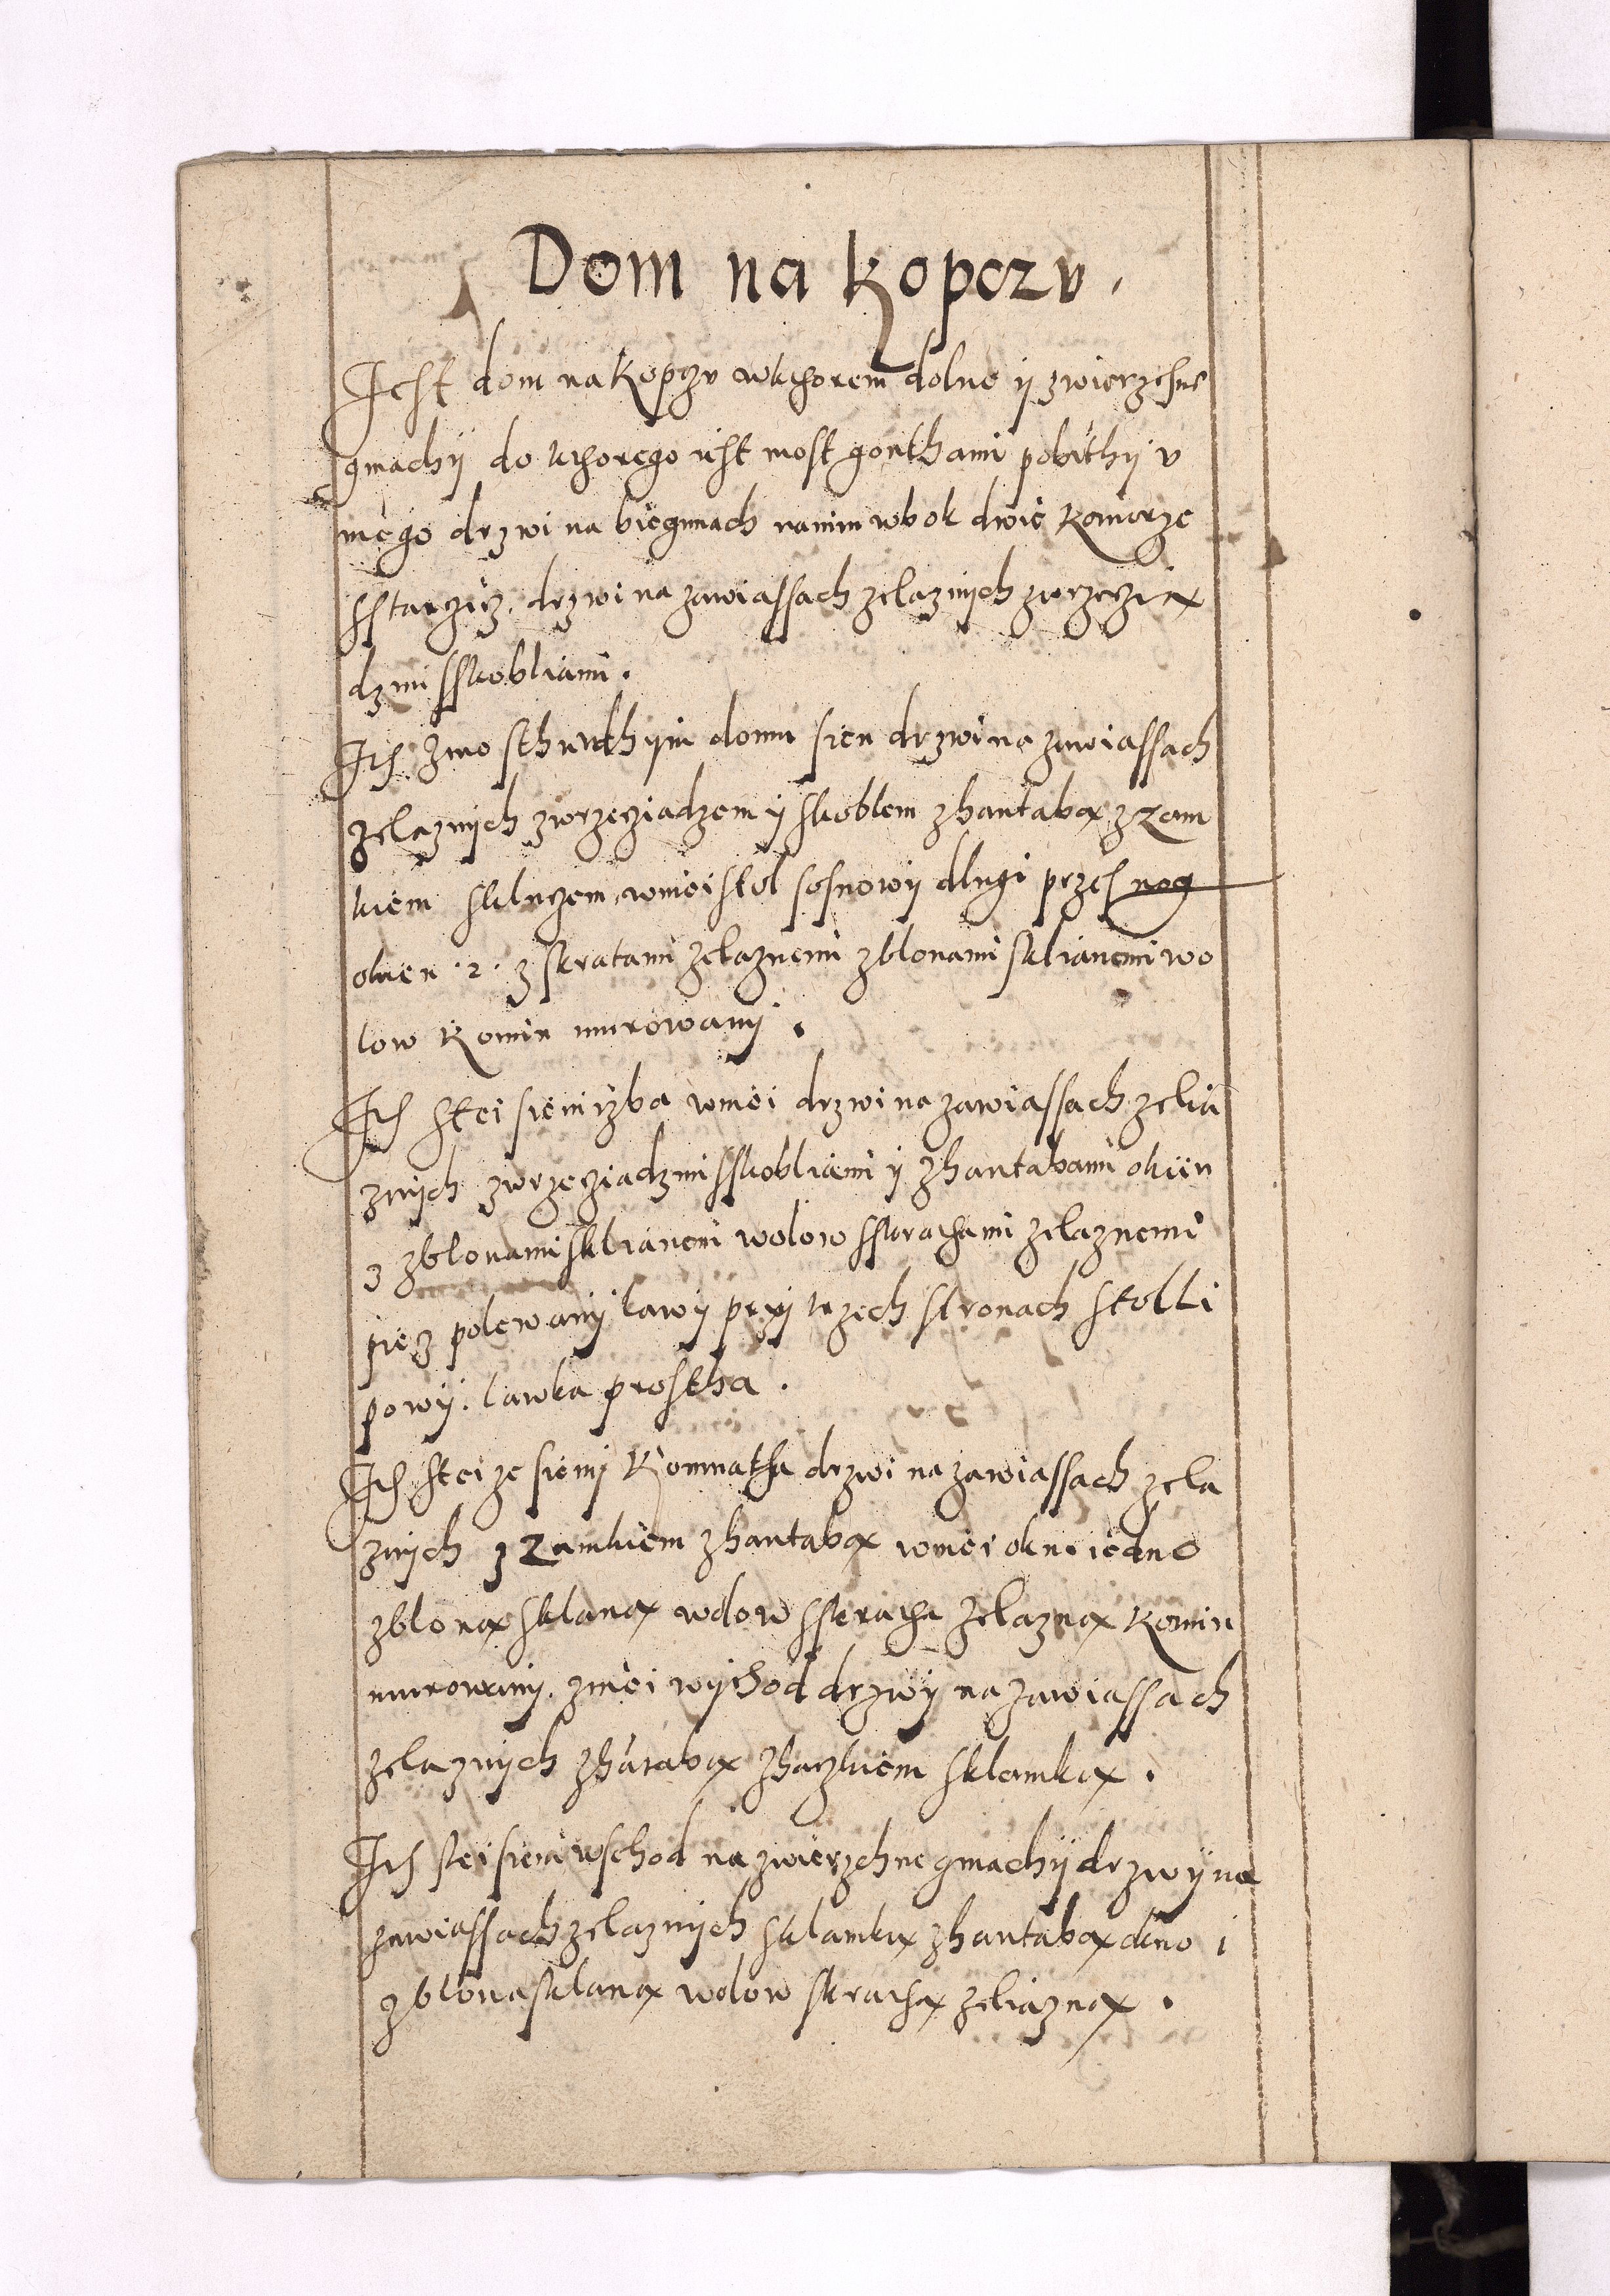 Dom na kopczv.
Jest dom na kopczv wktorem dolne ÿ zwierzchne
gmachÿ do ktorego iest most gonthami pobithÿ v
niego drzwi na biegunach nanim wbok dwie komorze
sstarczicz. drzwi na zawiassach zelaznÿch zwrzeczią
dzmi sskobliami.
Ith zmosthu wthÿm domu sien drzwi na zawiassach
zelaznÿch zwrzecziadzem ÿ skoblem zhantabą z zam
kiem skluczem, wniei stol sosnowÿ dlugi przes nog
okien .2. z kratami zelaznemi zblonami sklianemi wo
low komin murowanÿ.
Ith stei sieni izba wniei drzwi na zawiassach zelia
znÿch zwrzecziadzmi sskobliami ÿ zhantabami okiin
3 zblonami sklianemi wolow sskrathami zelaznemi
piecz polewanÿ lawÿ przÿ trzech stronach stol li
powÿ. lawka prostha.
Ith stei ze sieni komnatha drzwi na zawiassach zela
znÿch z zamkiem zhantabą wniei okno iedno
zbloną sklaną wolow sskratha zelazną komin
murowanÿ. zniei wÿchod drzwÿ na zawiassach
zelaznÿch zhatabą zhaczkiem sklamką.
Ith stei sieni wschod na zwierzchne gmachÿ drzwÿ na
zawiassach zelaznÿch sklamką zhantabą okno 1
zblona sklaną wolow skrathą zeliazną.